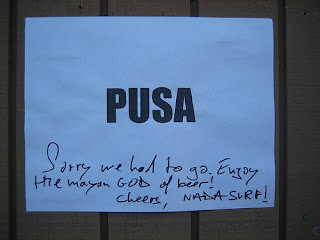 PUSA
Sorry we had to go. Enjoy
the mayan GOD of beer!
cheers, NADA SURF!